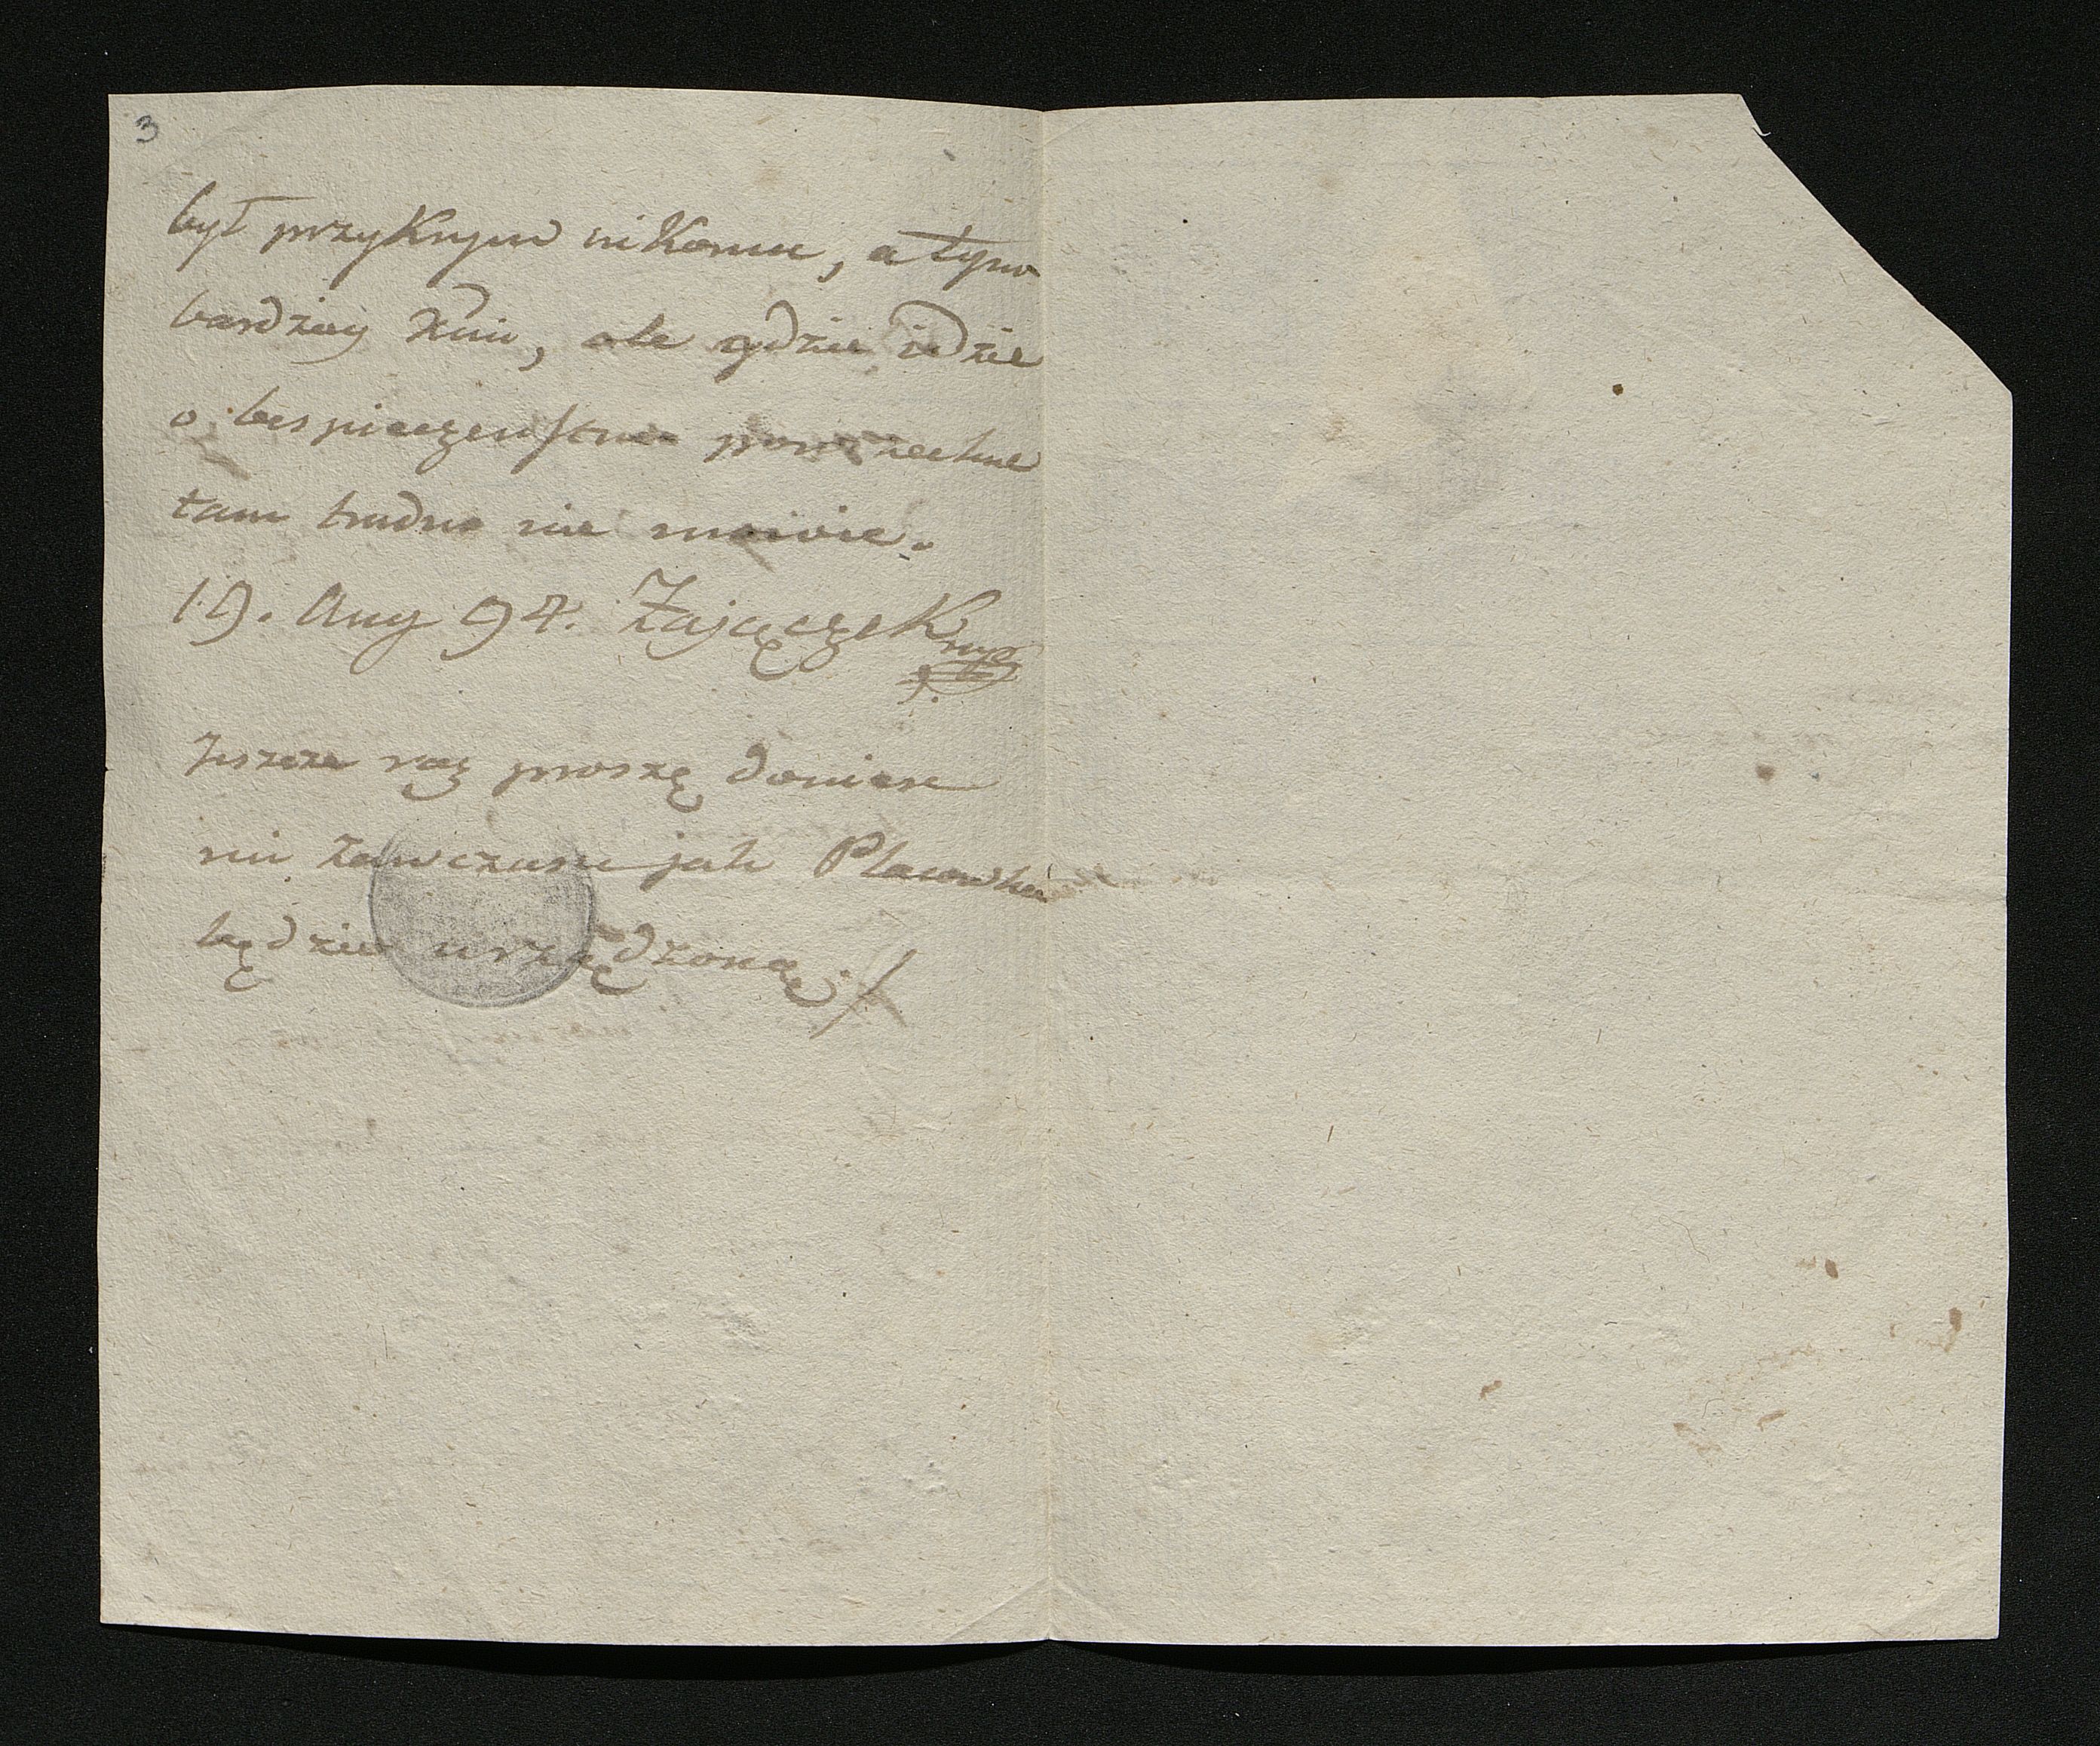 3
był przykrym nikomu, a tym
bardziey Xciu, ale gdzie idzie
o bespieczeństwo powrzechne
tam trudno nie mowic.
19. Aug 94. Zajączek
Jeszcze raz proszę doniesc
mi zawczasu jak Placowka
będzie urządzoną ./